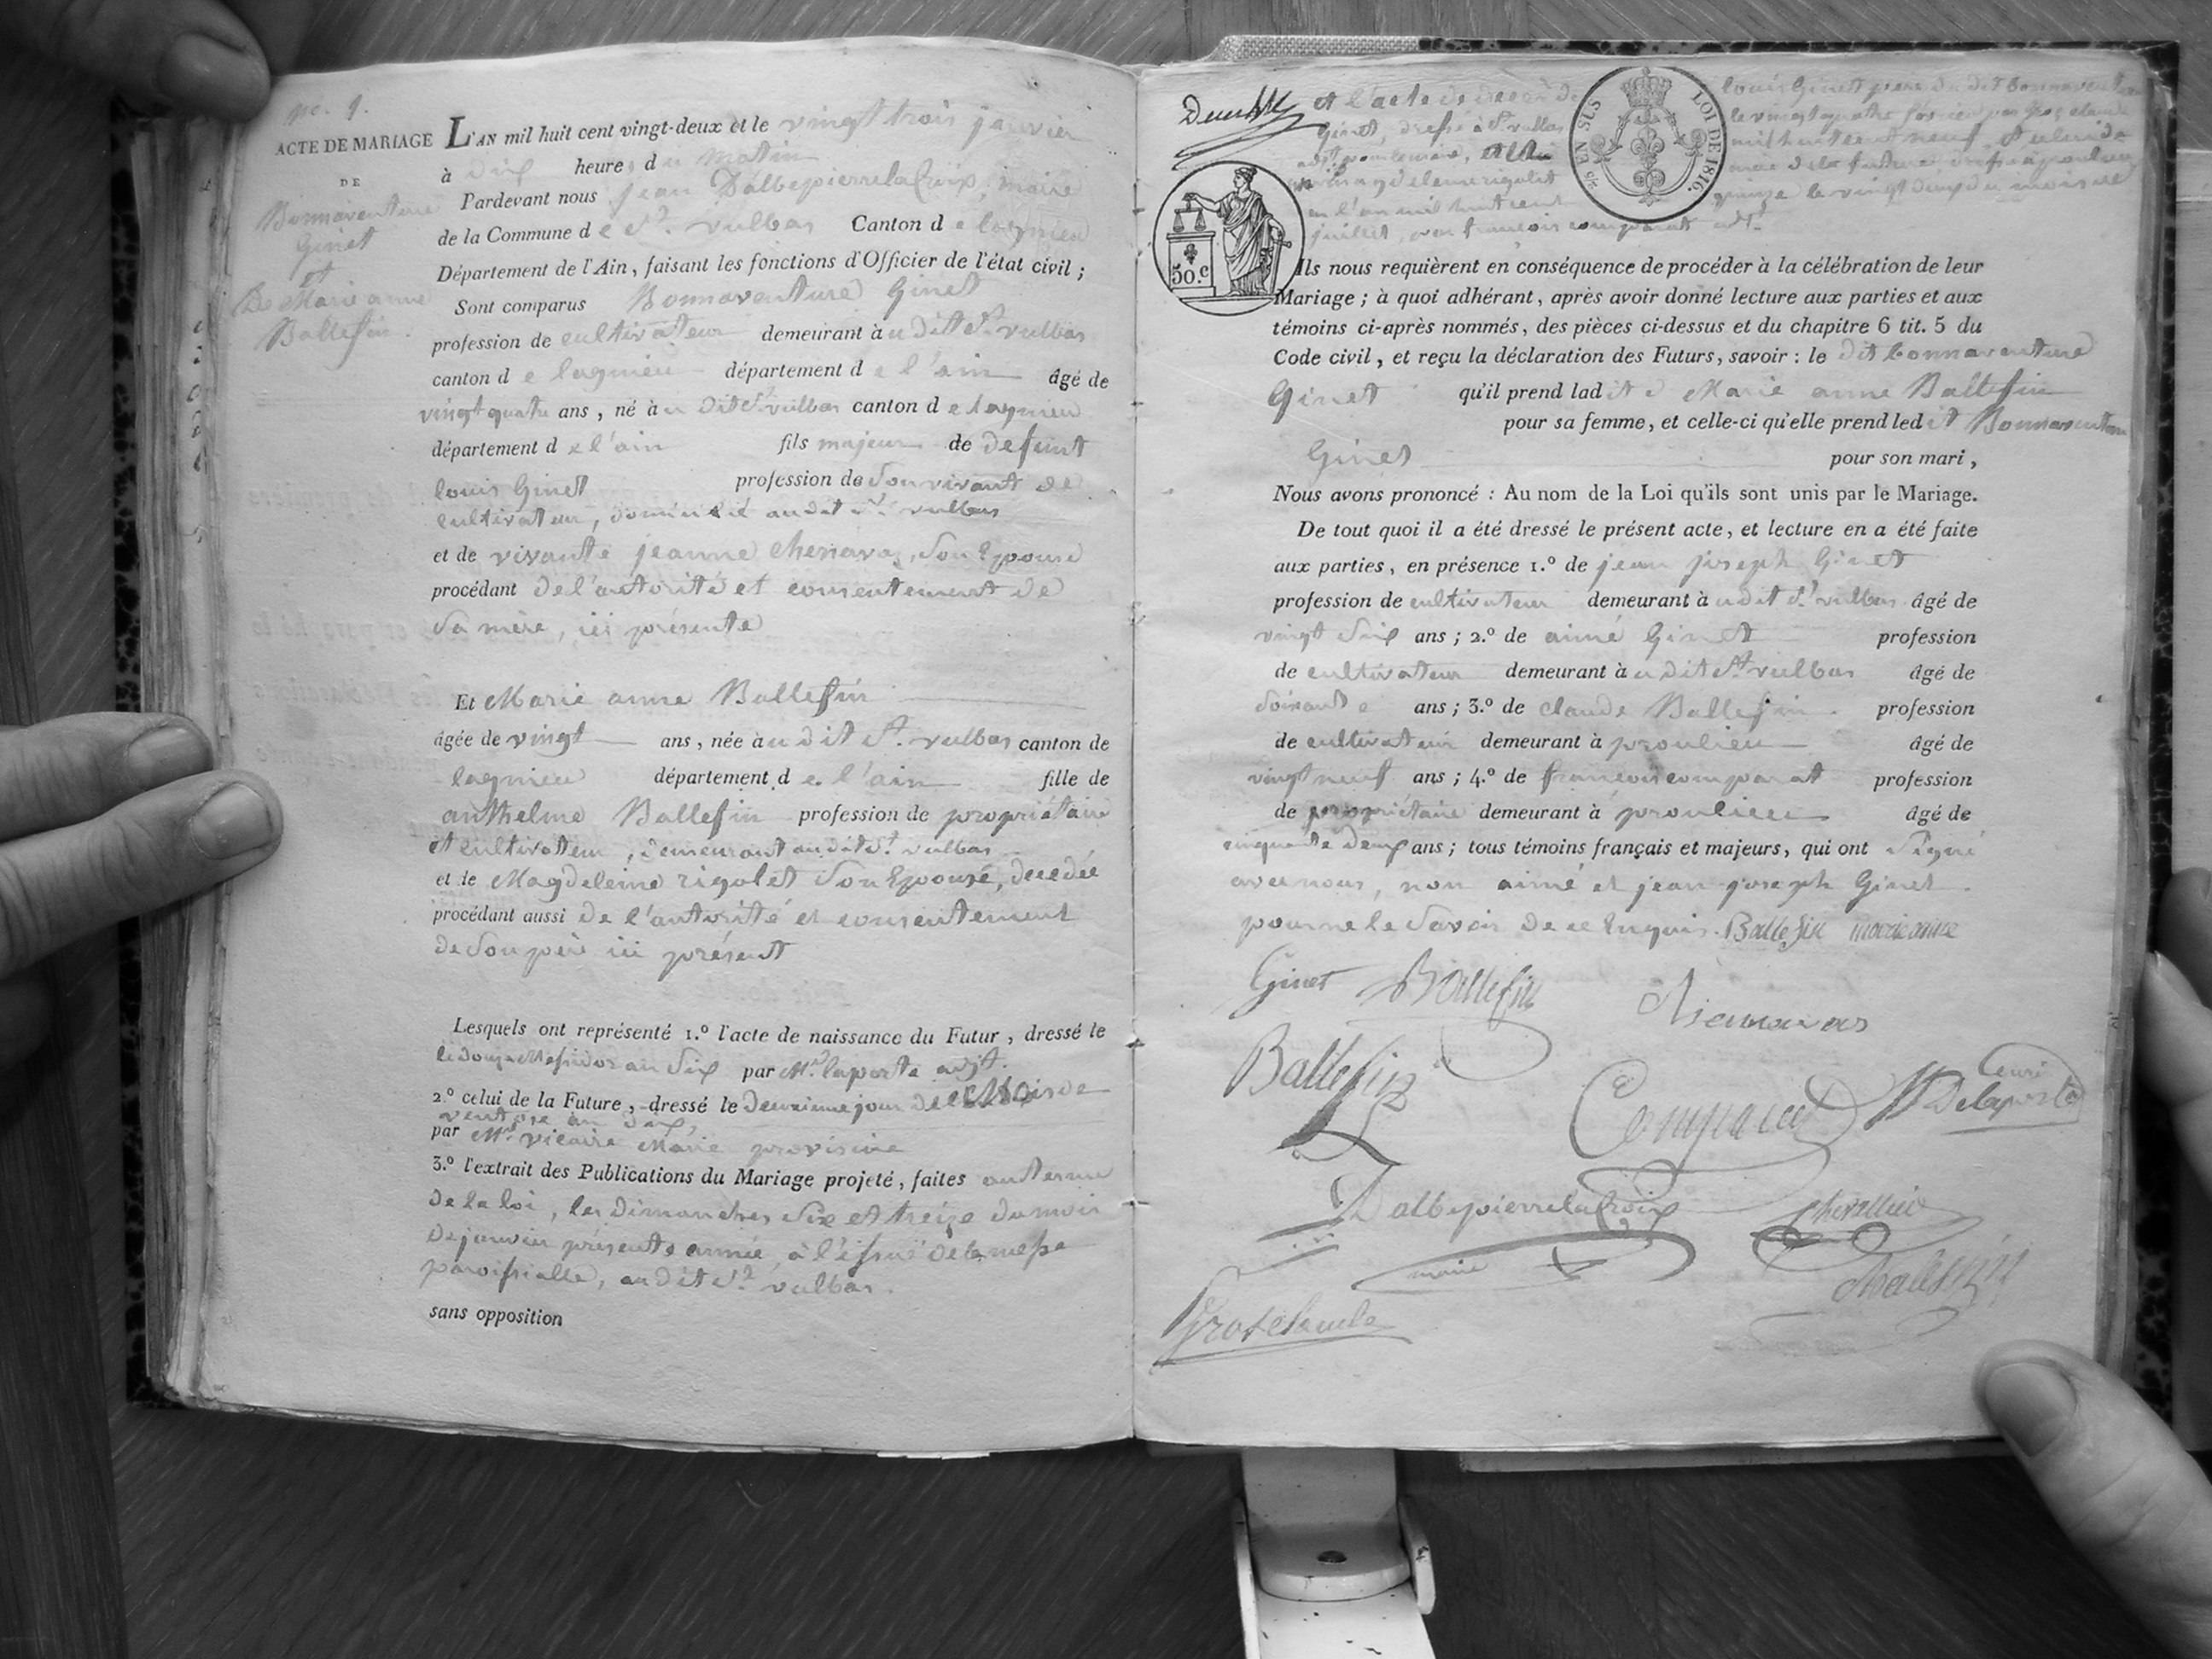 no. 1.
ACTE DE MARIAGE
DE
Bonnaventure
Ginet
et
De Marie anne
Ballefin.
L'AN mil huit cent vingt-deux et le vingt trois janvier
à dix heures du matin
Pardevant nous jean Dalbepierrelacroix, maire
de la Commune de St. vulbas Canton de lagnieu
Département de l'Ain, faisant les fonctions d'Officier de l'état civil ;
Sont comparus Bonnaventure Ginet
profession de cultivateur demeurant audit St. vulbas
canton de lagnieu département de l'ain âgé de
vingt quatre ans, né au dit St vulbas canton de lagnieu
département de l'ain fils majeur de defunt
louis Ginet profession de Son vivant de
cultivateur, domicilié audit St. vulbas
et de vivante jeanne chenavaz, Son Epouse
procédant de l'autorité et consentement de
Sa mère, ici présente
Et Marie anne Ballefin
âgée de vingt ans, née audit St. vulbas canton de
lagnieu département de l'ain fille de
anthelme Ballefin profession de propriétaire
et cultivateur, demeurant audit St. vulbas
et de Magdeleine rigolet Son Epouse, decedée
procédant aussi de l'autorité et consentement
de Son père ici présent
Lesquels ont représenté 1.º l'acte de naissance du Futur, dressé le
le douze Messidor an Six par Mr. laporte adjt.
2.º celui de la Future, dressé le deuxieme jour de Mois de
ventose an dix,
par Mr. vicaire Maire provisoire
3.º l'extrait des Publications du Mariage projeté, faites au terme
de la loi, les dimanches Six et treize du mois
de janvier présente année, à l'issue de la messe
paroissialle, audit St. vulbas.
sans opposition
et l'acte de deces de
Ginet, dressé à St. vulbas
en l'an mil huit cent
juillet, par françois comparat adt.
louis Ginet pere du dit bonnaventure
le vingt quatre
mil huit cent neuf
mere de la future dressé a proulieu
EN SUS
LOI DE 1816.
50.c
Ils nous requièrent en conséquence de procéder à la célébration de leur
Mariage ; à quoi adhérant, après avoir donné lecture aux parties et aux
témoins ci-après nommés, des pièces ci-dessus et du chapitre 6 tit. 5 du
Code civil, et reçu la déclaration des Futurs, savoir : le dit bonnaventure
Ginet qu'il prend ladite Marie anne Ballefin
pour sa femme, et celle-ci qu'elle prend ledit Bonnaventure
Ginet pour son mari,
Nous avons prononcé : Au nom de la Loi qu'ils sont unis par le Mariage.
De tout quoi il a été dressé le présent acte, et lecture en a été faite
aux parties, en présence 1.º de jean joseph Ginet
profession de cultivateur demeurant audit St. vulbas âgé de
vingt Six ans ; 2.º de aimé Ginet profession
de cultivateur demeurant audit St. vulbas âgé de
Soixante ans ; 3.º de claude Ballefin profession
de cultivateur demeurant à proulieu âgé de
vingt neuf ans ; 4.º de francois comparat profession
de propriétaire demeurant à proulieu âgé de
cinquante deux ans ; tous témoins français et majeurs, qui ont Signé
avec nous, non aimé et jean joseph Ginet.
pour ne le Savoir de ce Enquis. Ballefin marie anne
Ginet Ballefin
Ballefin Comparat Delaporte
Dalbepierrelacroix Chevallier
maire
Grosclaude